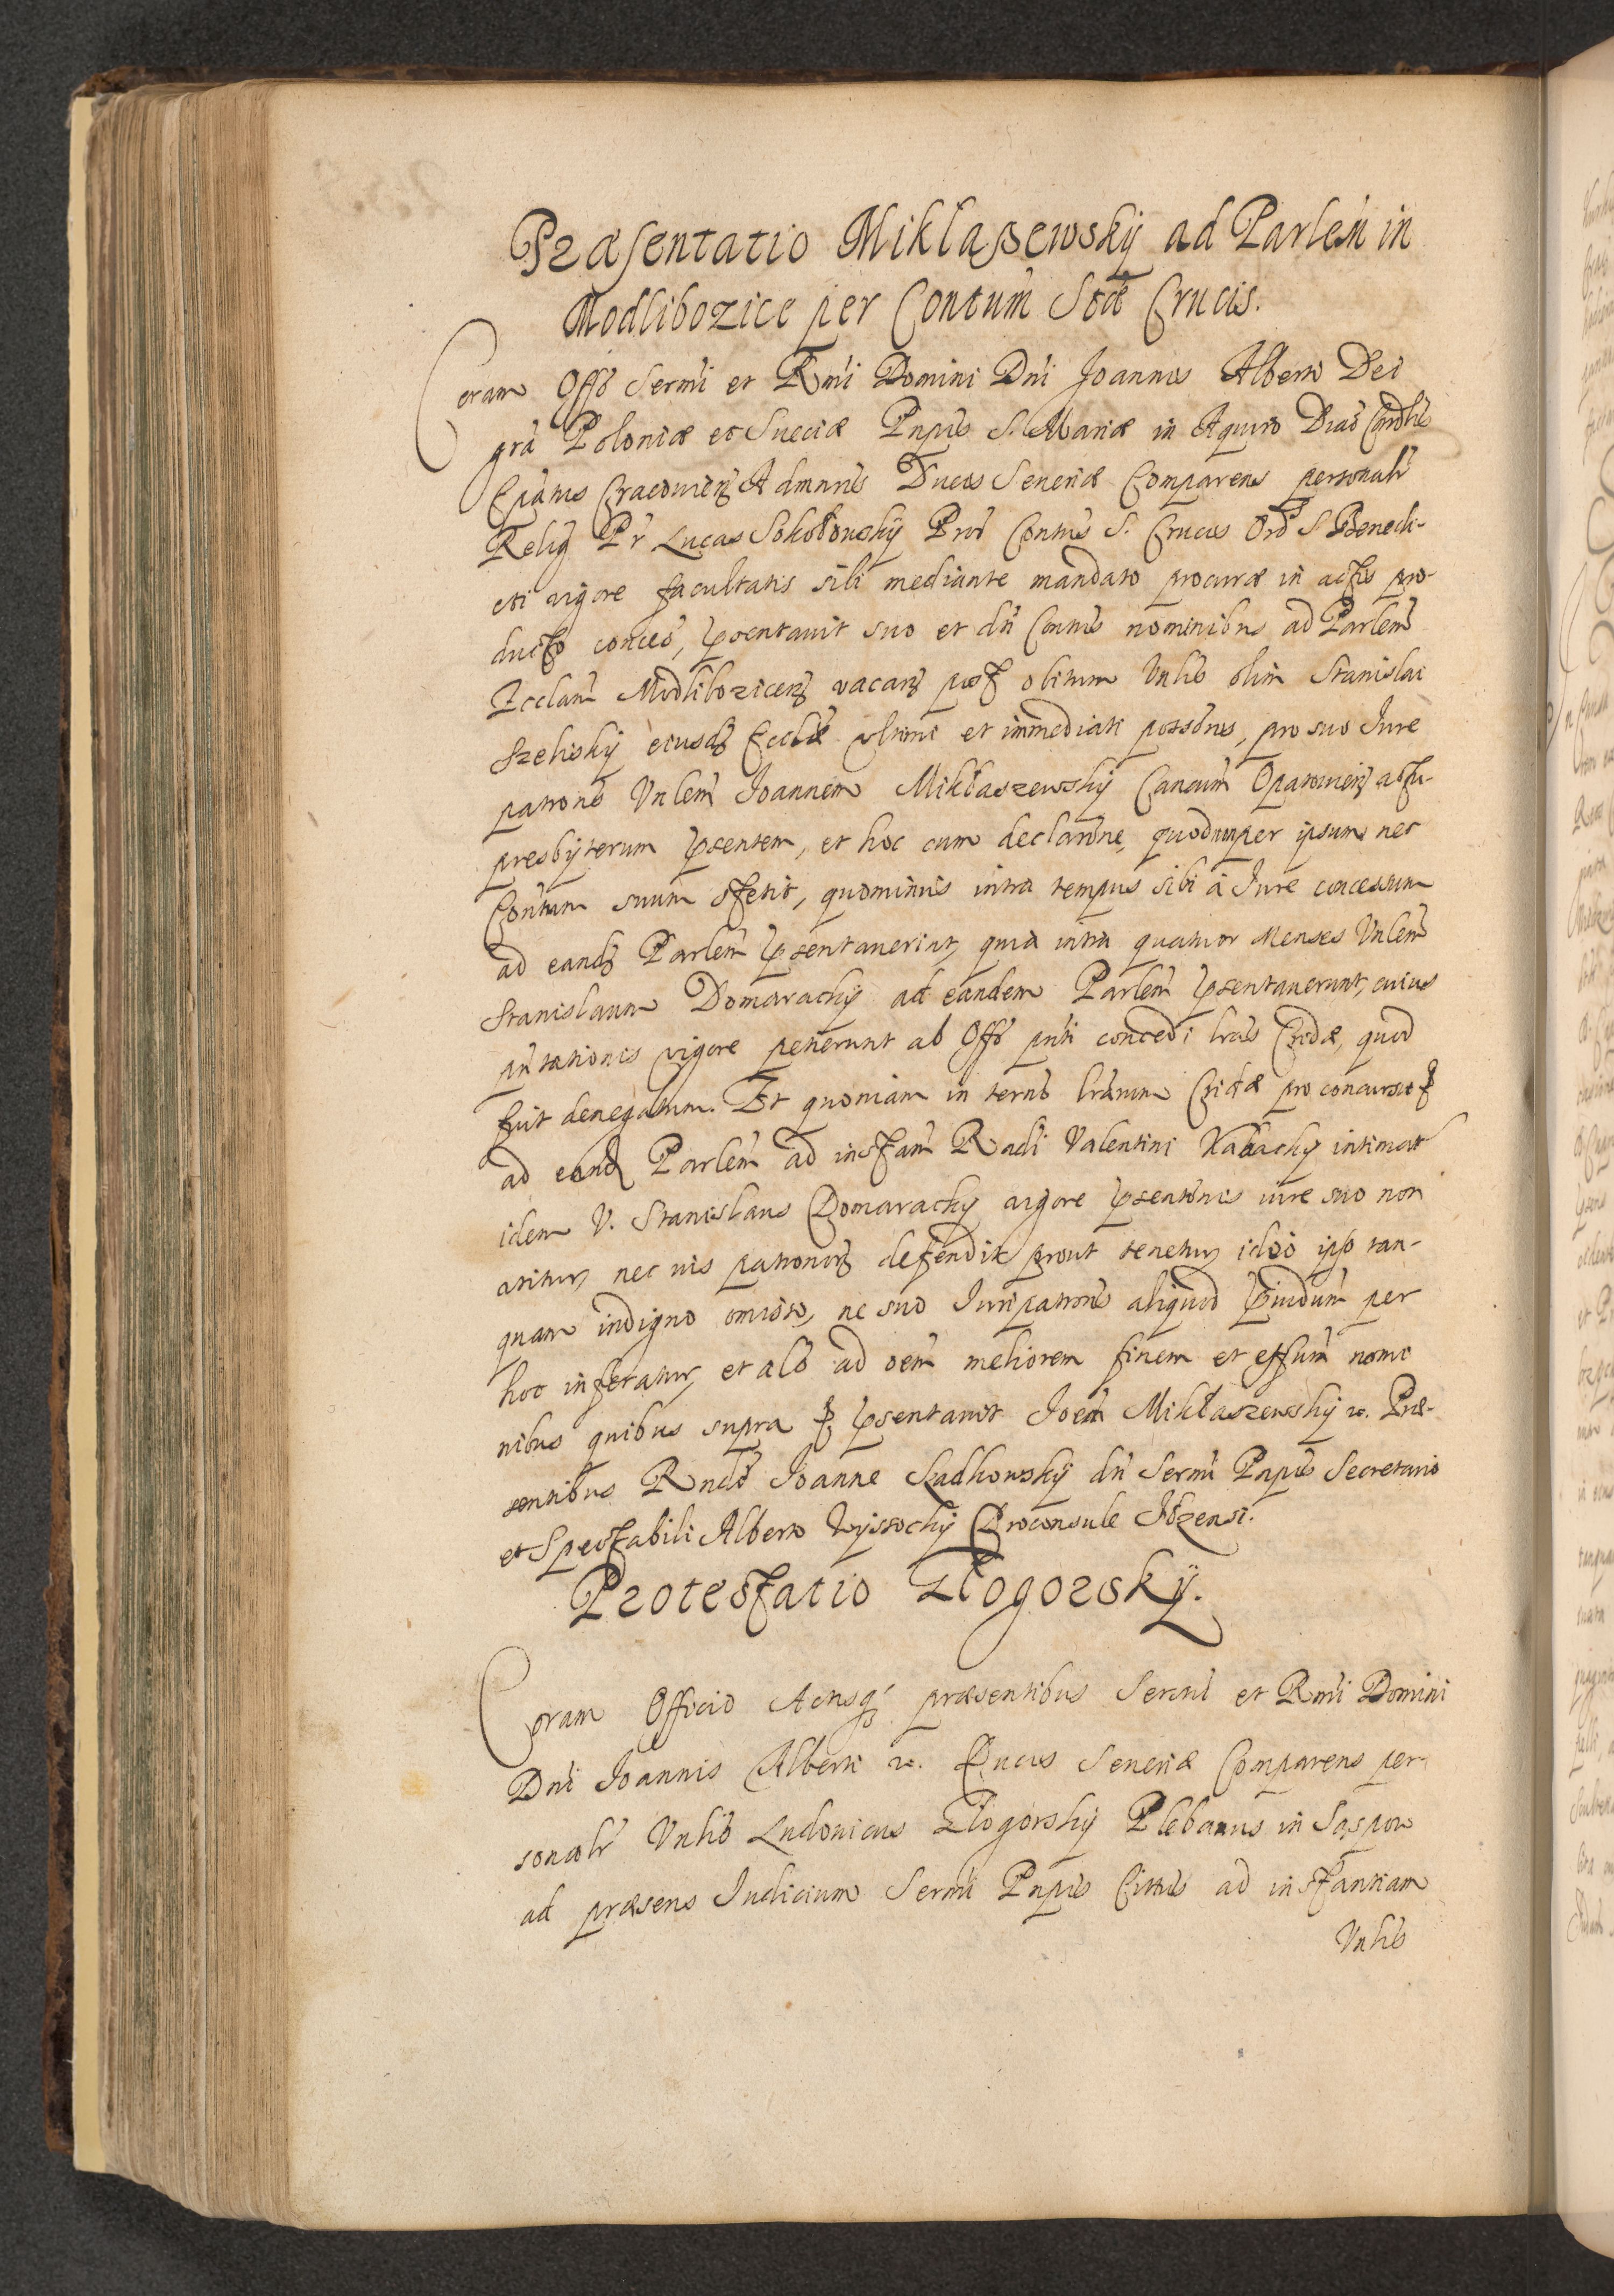 Præsentatio Miklaßewsky ad Parlem in
Modlibozice per Contum Stæ Crucis.
Coram Offo Sermi et Rmi Domini Dni Joannis Alberti Dei
gra Poloniæ et Sueciæ Pnpis S. Mariæ in Aquiro Diac Cardlis
Epatus Cracovien Admnris Ducis Seneriæ Comparens personalr
Relig Pr Lucas Sokołowsky Pror Contus S. Crucis Ord S Benedi-
cti vigore facultatis sibi mediante mandato procuræ in actis pro-
ducto concess, psentavit suo et dti Contus nominibus ad Parlem
Ecclam Modlibozicen vacan post obitum Vnlis olim Stanislai
Szelisky eiusd Ecclæ vltimi et immediati possoris, pro suo Iure
patrons Vnlem Joannem Mikłaszewsky Canoum Opatovien actu-
presbyterum psentem, et hoc cum declarone, quod nuper ipsum nec
Contum suum stetit, quominus intra tempus sibi à Iure concessum
ad eand Parlem psentaverint, quia intra quatuor Menses Vnlem
Stanislaum Domaracky ad eandem Parlem psentaverunt, cuius
pntationis vigore petierunt ab Offo pnti concedi lras Cridæ, quod
fuit denegatum. Et quoniam in termo lrarum Cridæ pro concursu
ad eand Parlem ad instam Rndi Valentini intimat
idem V. Stanislaus Domaracky vigore psentonis iure suo non
vtitur, nec ius patronor defendit prout tenetur, ideo ipso tan-
quam indigno omisso, ne suo Iuripatrons aliquod piudum per
hoc inferatur, et als ad oem meliorem finem et effum nomi
nibus quibus supra psentavit Joem Mikłaszewsky &c. Præ-
sentibus Rndo Joanne Sladkowsky dti Sermi Pnpis Secretario
et Spectabili Alberto Wysocky Proconsule Iłzensi.
Protestatio Złogorsky.
Coram Officio Actisq præsentibus Sermi et Rmi Domini
Dni Joannis Alberti &c. Ducis Seneriæ Comparens per
sonalr Vnlis Ludovicus Złogorsky Plebanus in Saspow
ad præsens Iudicium Sermi Pnpis Cittus ad instantiam
Vnlis